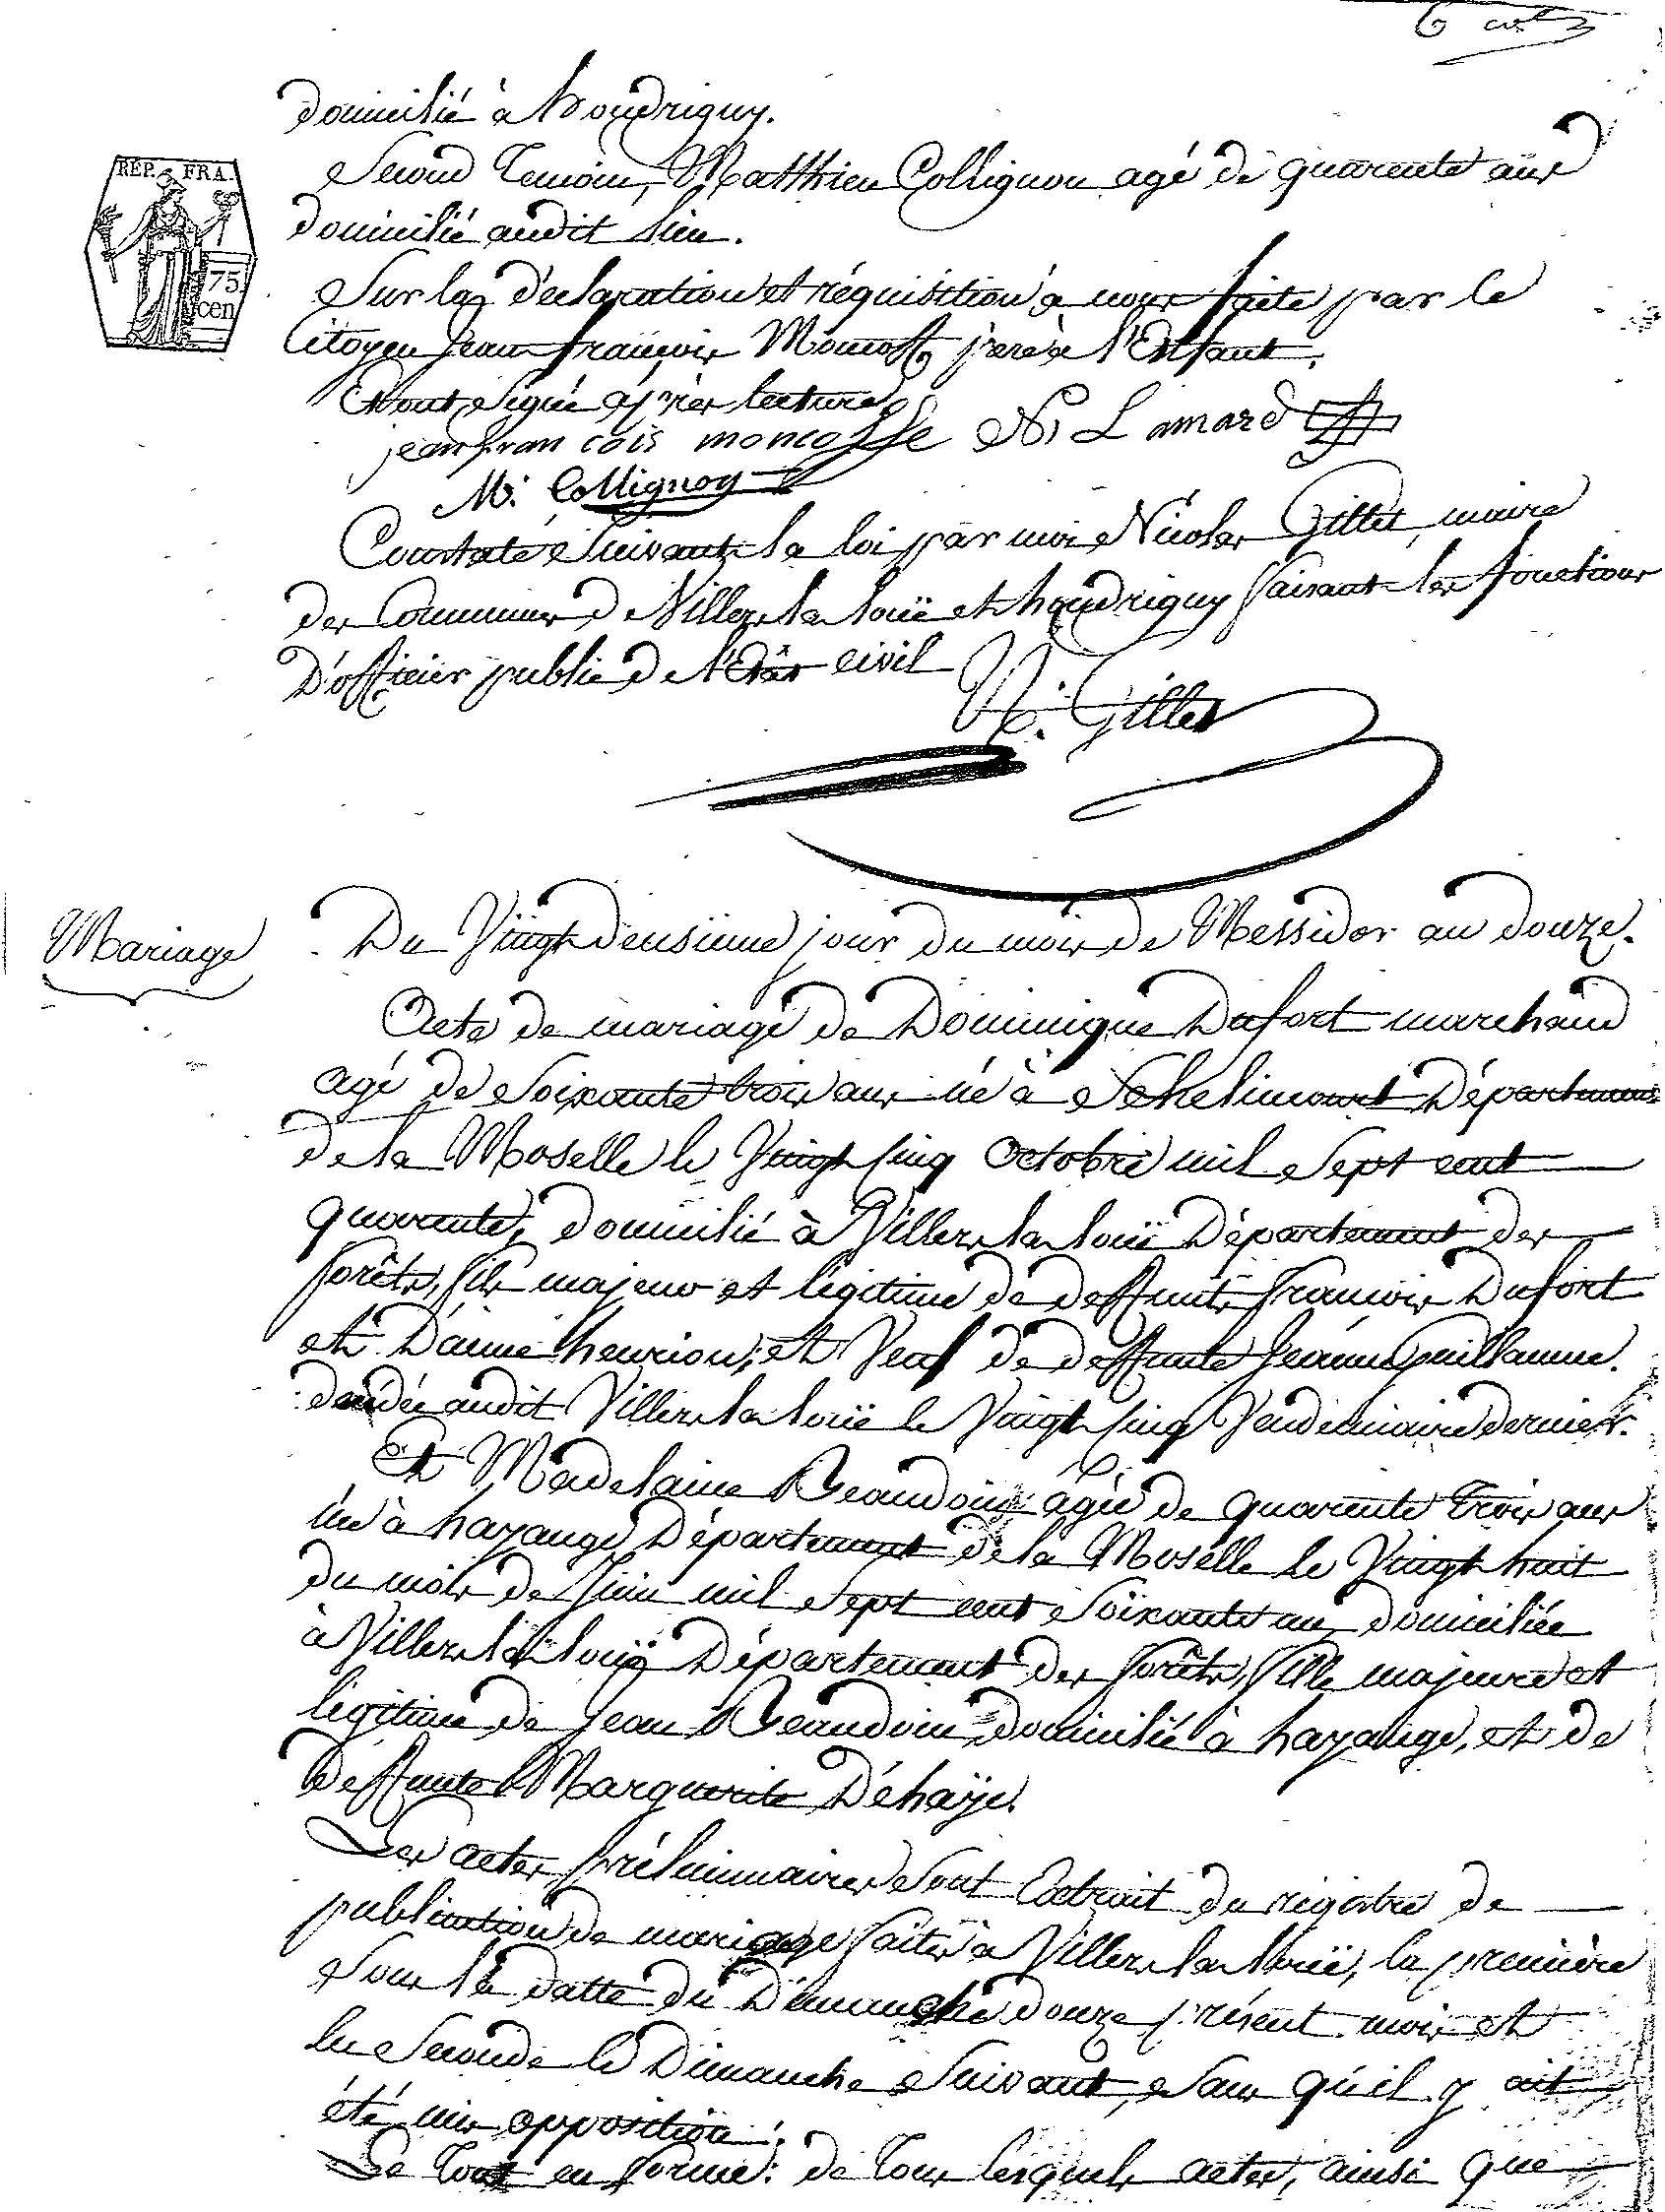 domicilié à houdrigny.
REP. FRA.
75
cen
Second Temoin, Matthieu Collignon agé de quarente ans
domicilié audit lieu.
Sur la déclaration et réquisition à nous faite par le
Citoyen Jean françois Moncoss père à l'Enfant.
Et ont signé après lecture
jeanfran cois moncosse N. Lamard
M. Collignon
Constaté suivant la loi par moi Nicolas Gillet, maire
des Communes de Villers la loüe et houdrigny faisant les fonctions
D'officier public de l'Etât civil
N. Gillet
Mariage
Du Vingt deusieme jour du mois de Messidor an douze.
Acte de mariage de Dominique Dufort marchand
agé de Soixante trois ans né à Sehelincourt Département
de la Moselle le Vingt cinq Octobre mil Sept cent
quarente, domicilié à Villers la loüe Département des
forêts, fils majeur et légitime de deffunts françois Dufort
et D'anne henrion, et Veuf de deffunte Jeanne Guillaume.
décédée audit Villers la loüe le Vingt cinq Vendemiaire dernier.
Et Madelaine Beaudoin agée de quarente trois ans
née à hayange Département de la Moselle le Vingt huit
du mois de Juin mil Sept cent Soixante un, domiciliée
à Villers la loüe Département des forêts, fille majeure et
légitime de Jean Beaudoin domicilié à hayange, et de
deffunte Marguerite Déhaÿe.
Les actes préliminaires Sont Extrait du régistre de
publication de mariage faites à Villers la loüe, la première
Sous la datte du Dimanche douze présent mois et
la Seconde le Dimanche Suivant, Sans qu'il y ait
été mis opposition.
Le Tout en forme: de Tous lesquels actes, ainsi que